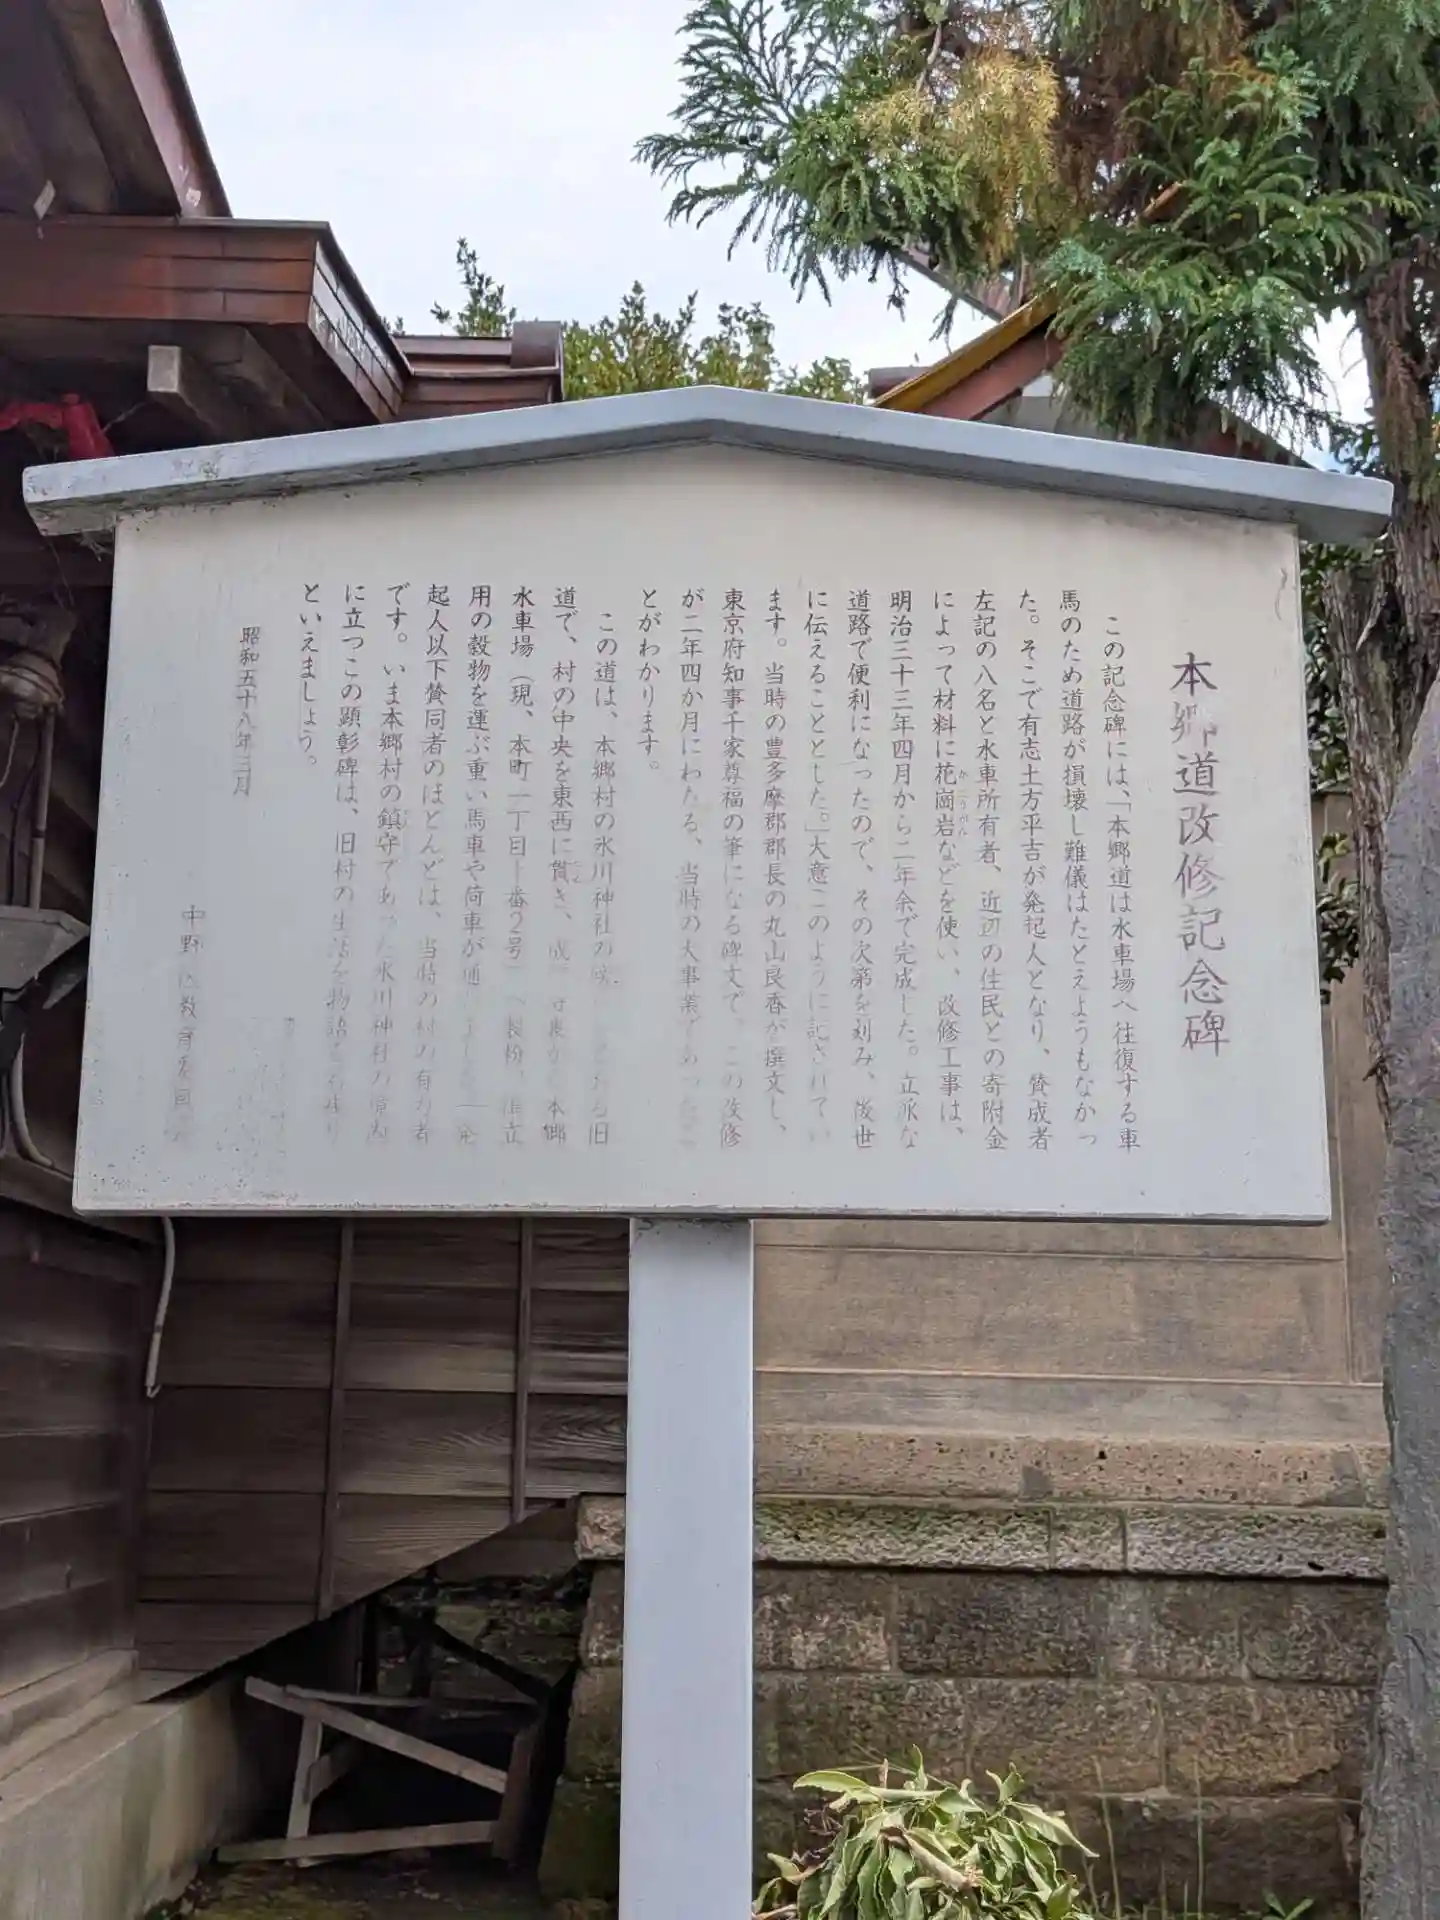 本郷道改修記念碑
この記念碑には、「本郷道は水車場へ往復する車
馬のため道路が損壊し難儀はたとえようもなかっ
た。そこで有志土方平吉が発起人となり、賛成者
左記の八名と水車所有者、近辺の住民との寄附金
によって材料に花崗岩などを使い、改修工事は、
明治三十三年四月から二年余で完成した。立派な
道路で便利になったので、その次第を刻み、後世
に伝えることとした。」大意このように記されてい
ます。当時の豊多摩郡郡長の丸山良香が撰文し、
東京府知事千家尊福の筆になる碑文で、この改修
が二年四か月にわたる、当時の大事業であったこ
とがわかります。
この道は、本郷村の氷川神社の 旧
道で、村の中央を東西に貫き、成 本郷
水車場（現、本町一丁目十番2号）へ製粉、
用の穀物を運ぶ重い馬車や荷車が通 発
起人以下賛同者のほとんどは、当時の村の有力者
です。いま本郷村の鎮守であった氷川神社の境内
に立つこの顕彰碑は、旧村の生活を物語る
といえましょう。
昭和五十八年三月
中野区教育委員会